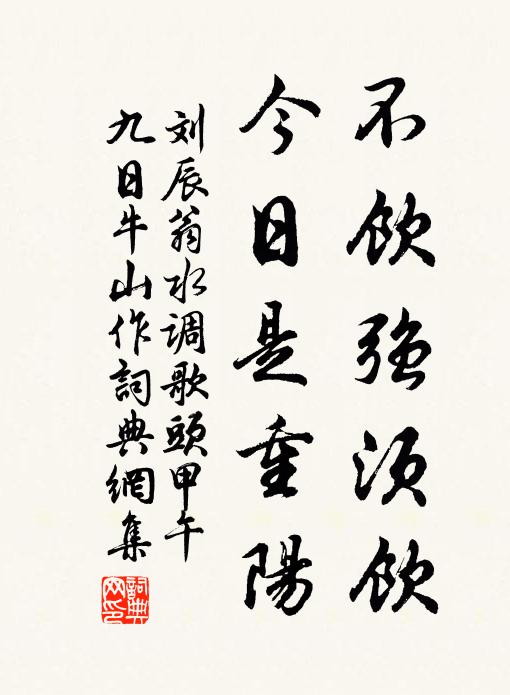 不飲強須飲
今日是重陽
刘辰翁水调歌頭甲午
九日牛山作詞典網集
詞典網印